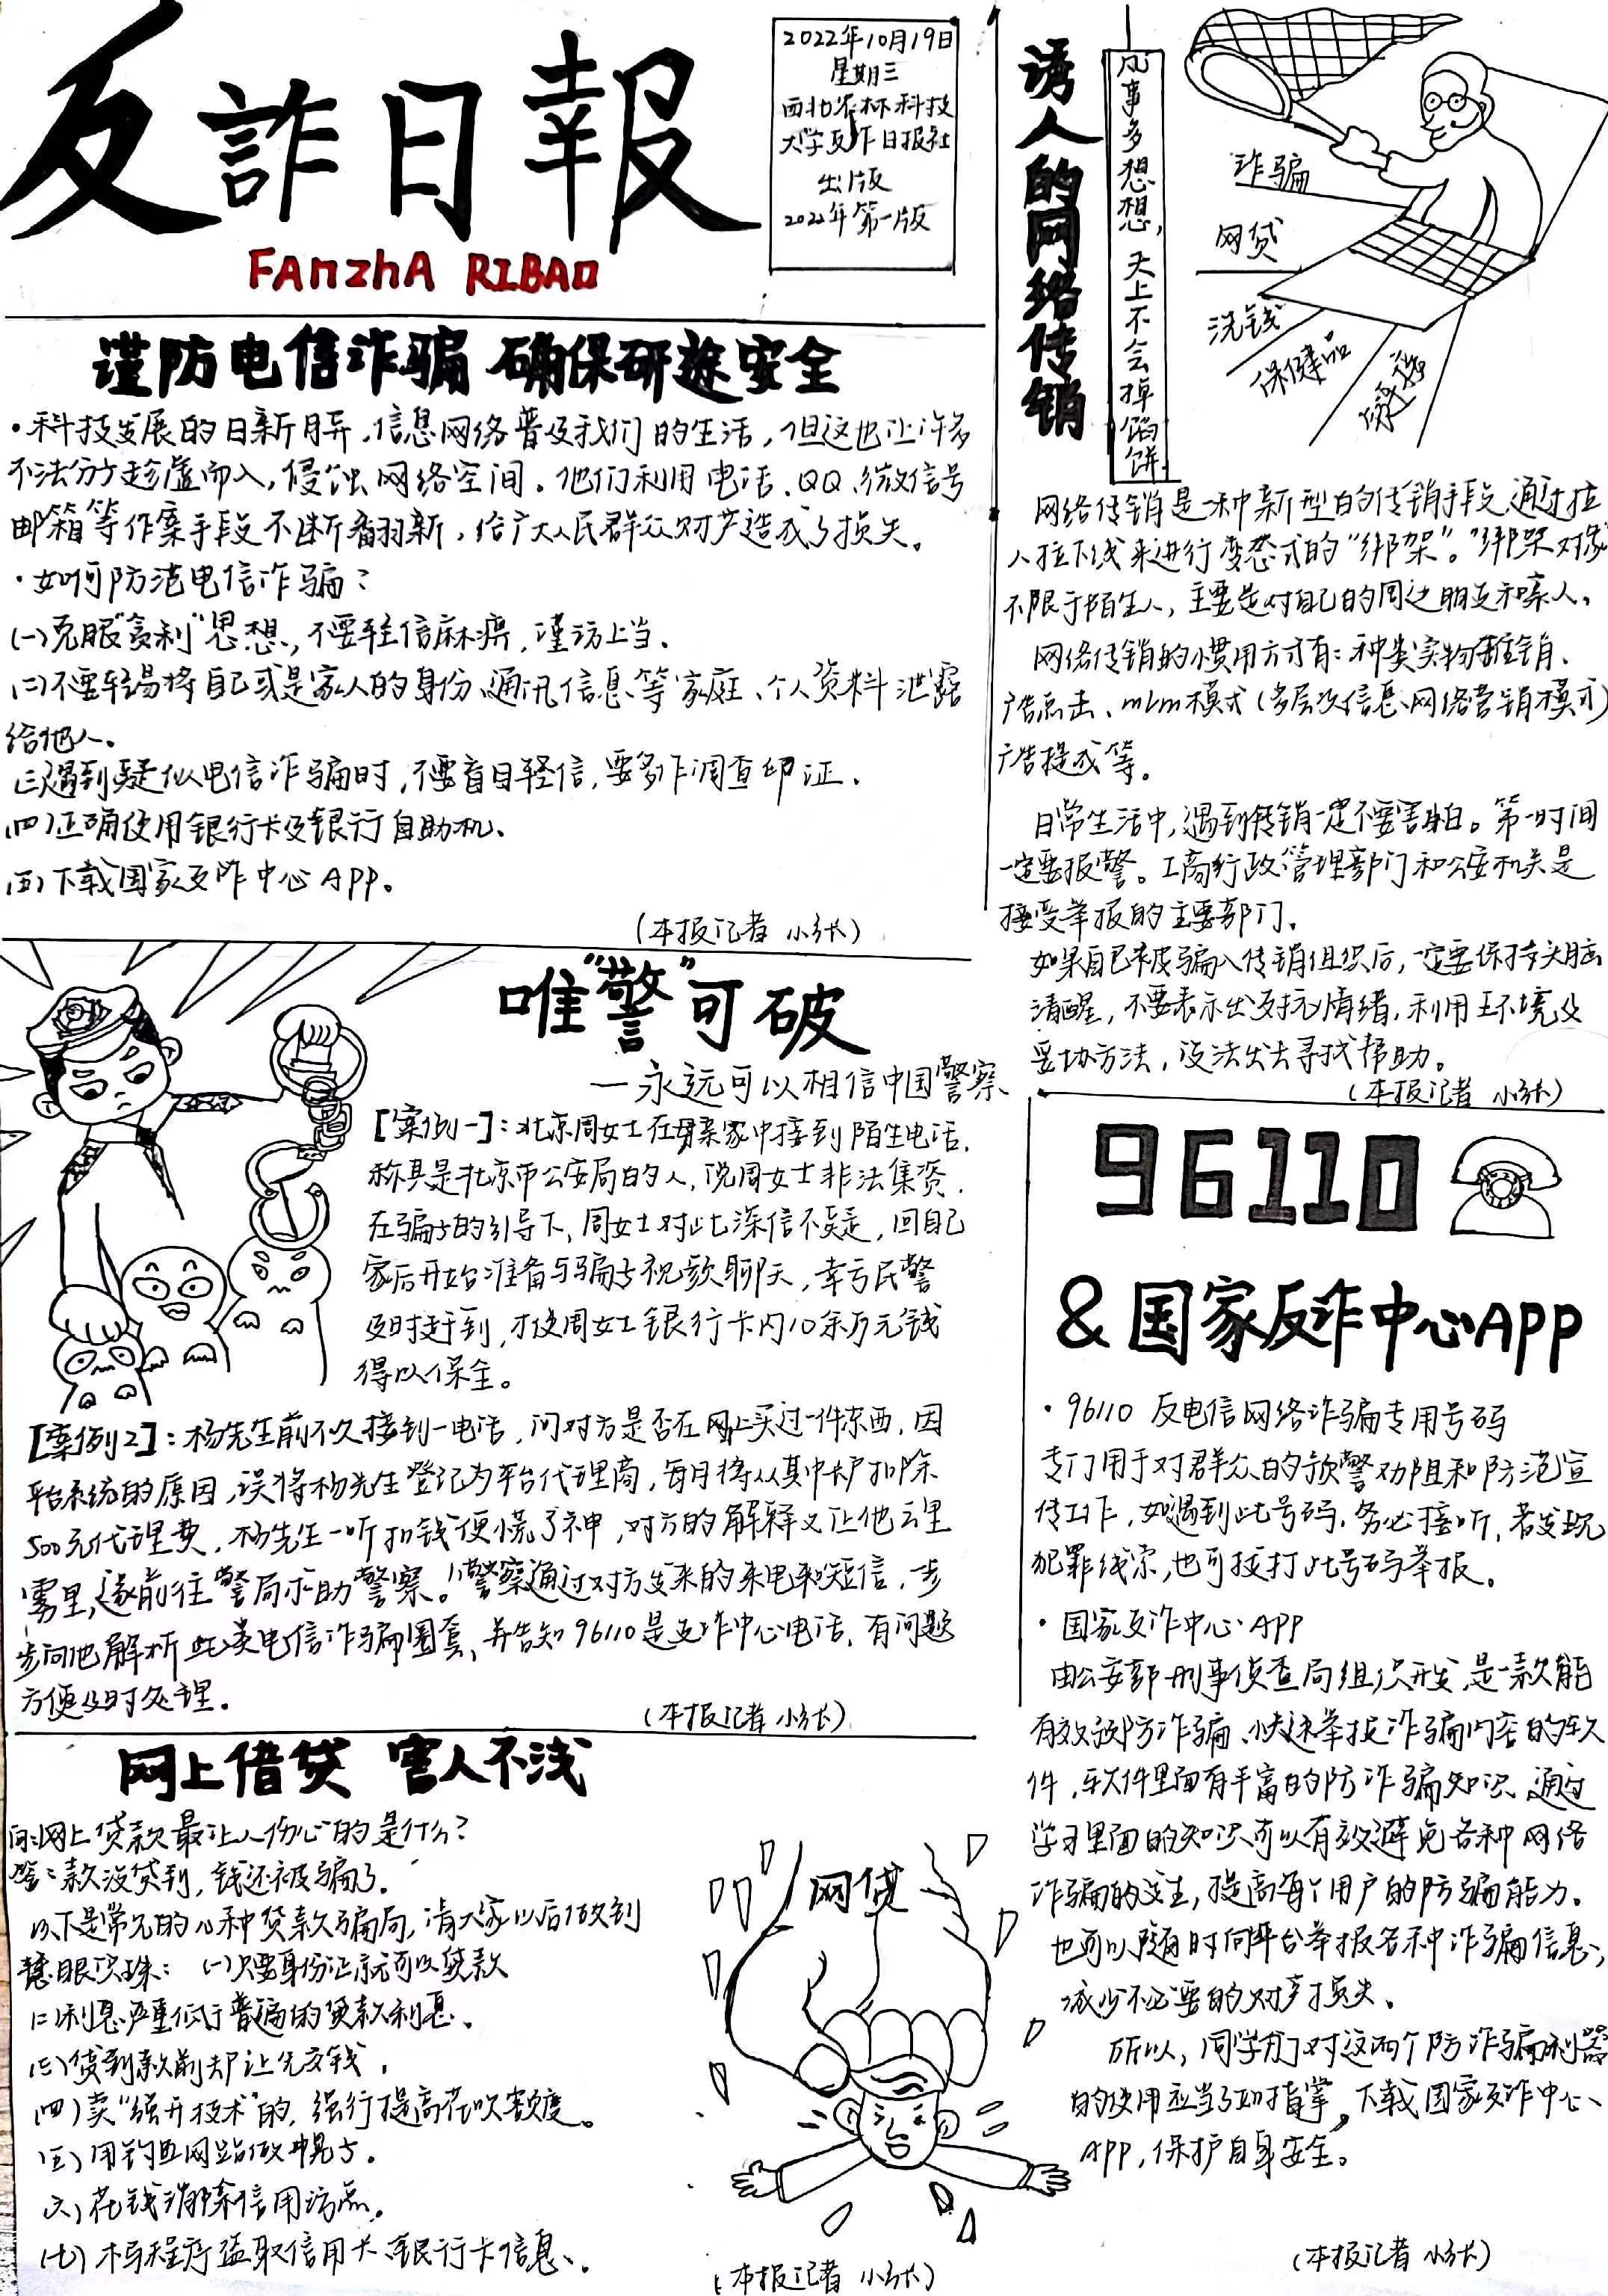 反詐日報
FAnzhA RIBAO
2022年10月19日
星期三
西北农林科技
大学反诈日报社
出版
2022年第一版
谨防电信诈骗 确保研途安全
·科技发展的日新月异,信息网络普及我们的生活,但这也让许多
不法分子趁虚而入,侵蚀网络空间。他们利用电话、QQ、微信号
邮箱等作案手段不断翻新,给广大人民群众财产造成了损失。
·如何防范电信诈骗?
(一)克服“贪利”思想,不要轻信麻痹,谨防上当.
(二)不要轻易将自己或是家人的身份、通讯信息等家庭、个人资料泄露
给他人。
(三)遇到疑似电信诈骗时,不要盲目轻信,要多作调查印证.
(四)正确使用银行卡及银行自助机、
(五)下载国家反诈中心APP。
(本报记者 小张)
唯“警”可破
—永远可以相信中国警察
[案例一]:北京周女士在母亲家中接到陌生电话,
称其是北京市公安局的人,说周女士非法集资.
在骗子的引导下,周女士对此深信不疑,回自己
家后开始准备与骗子视频聊天,幸亏民警
及时赶到,才使周女士银行卡内10余万元钱
得以保全。
[案例2]:杨先生前不久接到一电话,问对方是否在网上买过一件东西,因
平台系统的原因,误将杨先生登记为平台代理商,每月将从其中扣除
500元代理费,杨先生一听扣钱便慌了神,对方的解释又让他云里
雾里,遂前往警局求助警察。警察通过对方发来的来电和短信,步
步向他解析此类电信诈骗圈套、并告知96110是反诈中心电话,有问题
方便及时处理.
(本报记者 小张)
网上借贷 害人不浅
问:网上贷款最让人伤心的是什么?
答:款没贷到,钱还被骗了.
以下是常见的几种贷款骗局,请大家以后做到
慧眼识珠: (一)只要身份证就可以贷款
(二)利息严重低于普遍的贷款利息、
(三)贷到款前却让先交钱.
(四)卖“强开技术”的,强行提高花呗额度。
(五)用钓鱼网站做幌子。
(六)花钱消除信用污点。
(七)木马程序盗取信用卡、银行卡信息、
网贷
(本报记者 小张)
诱人的网络传销
凡事多想想,天上不会掉馅饼
诈骗
网贷
洗钱
保健品
网络传销是一种新型的传销手段,通过拉
人拉下线来进行变态式的“绑架”。“绑架”对象
不限于陌生人,主要是对自己的周边朋友和亲人。
网络传销的惯用方式有:种类实物推销、
广告点击、mlm模式(多层次信息网络营销模式)
广告提成等。
日常生活中,遇到传销一定不要害怕。第一时间
一定要报警。工商行政管理部门和公安机关是
接受举报的主要部门.
如果自己被骗入传销组织后,一定要保持头脑
清醒,不要表示出反抗情绪,利用环境及
妥协方法,设法出去寻找帮助。
(本报记者 小张)
96110
&国家反诈中心APP
·96110 反电信网络诈骗专用号码
专门用于对群众的预警劝阻和防范宣
传工作,如遇到此号码,务必接听,若发现
犯罪线索,也可拨打此号码举报。
·国家反诈中心APP
由公安部刑事侦查局组织开发,是一款能
有效预防诈骗、快速举报诈骗内容的软
件,软件里面有丰富的防诈骗知识,通过
学习里面的知识可以有效避免各种网络
诈骗的发生,提高每个用户的防骗能力。
也可以随时向平台举报各种诈骗信息,
减少不必要的财产损失、
所以,同学们对这两个防诈骗利器
的使用应当了如指掌,下载国家反诈中心
APP,保护自身安全。
(本报记者 小张)